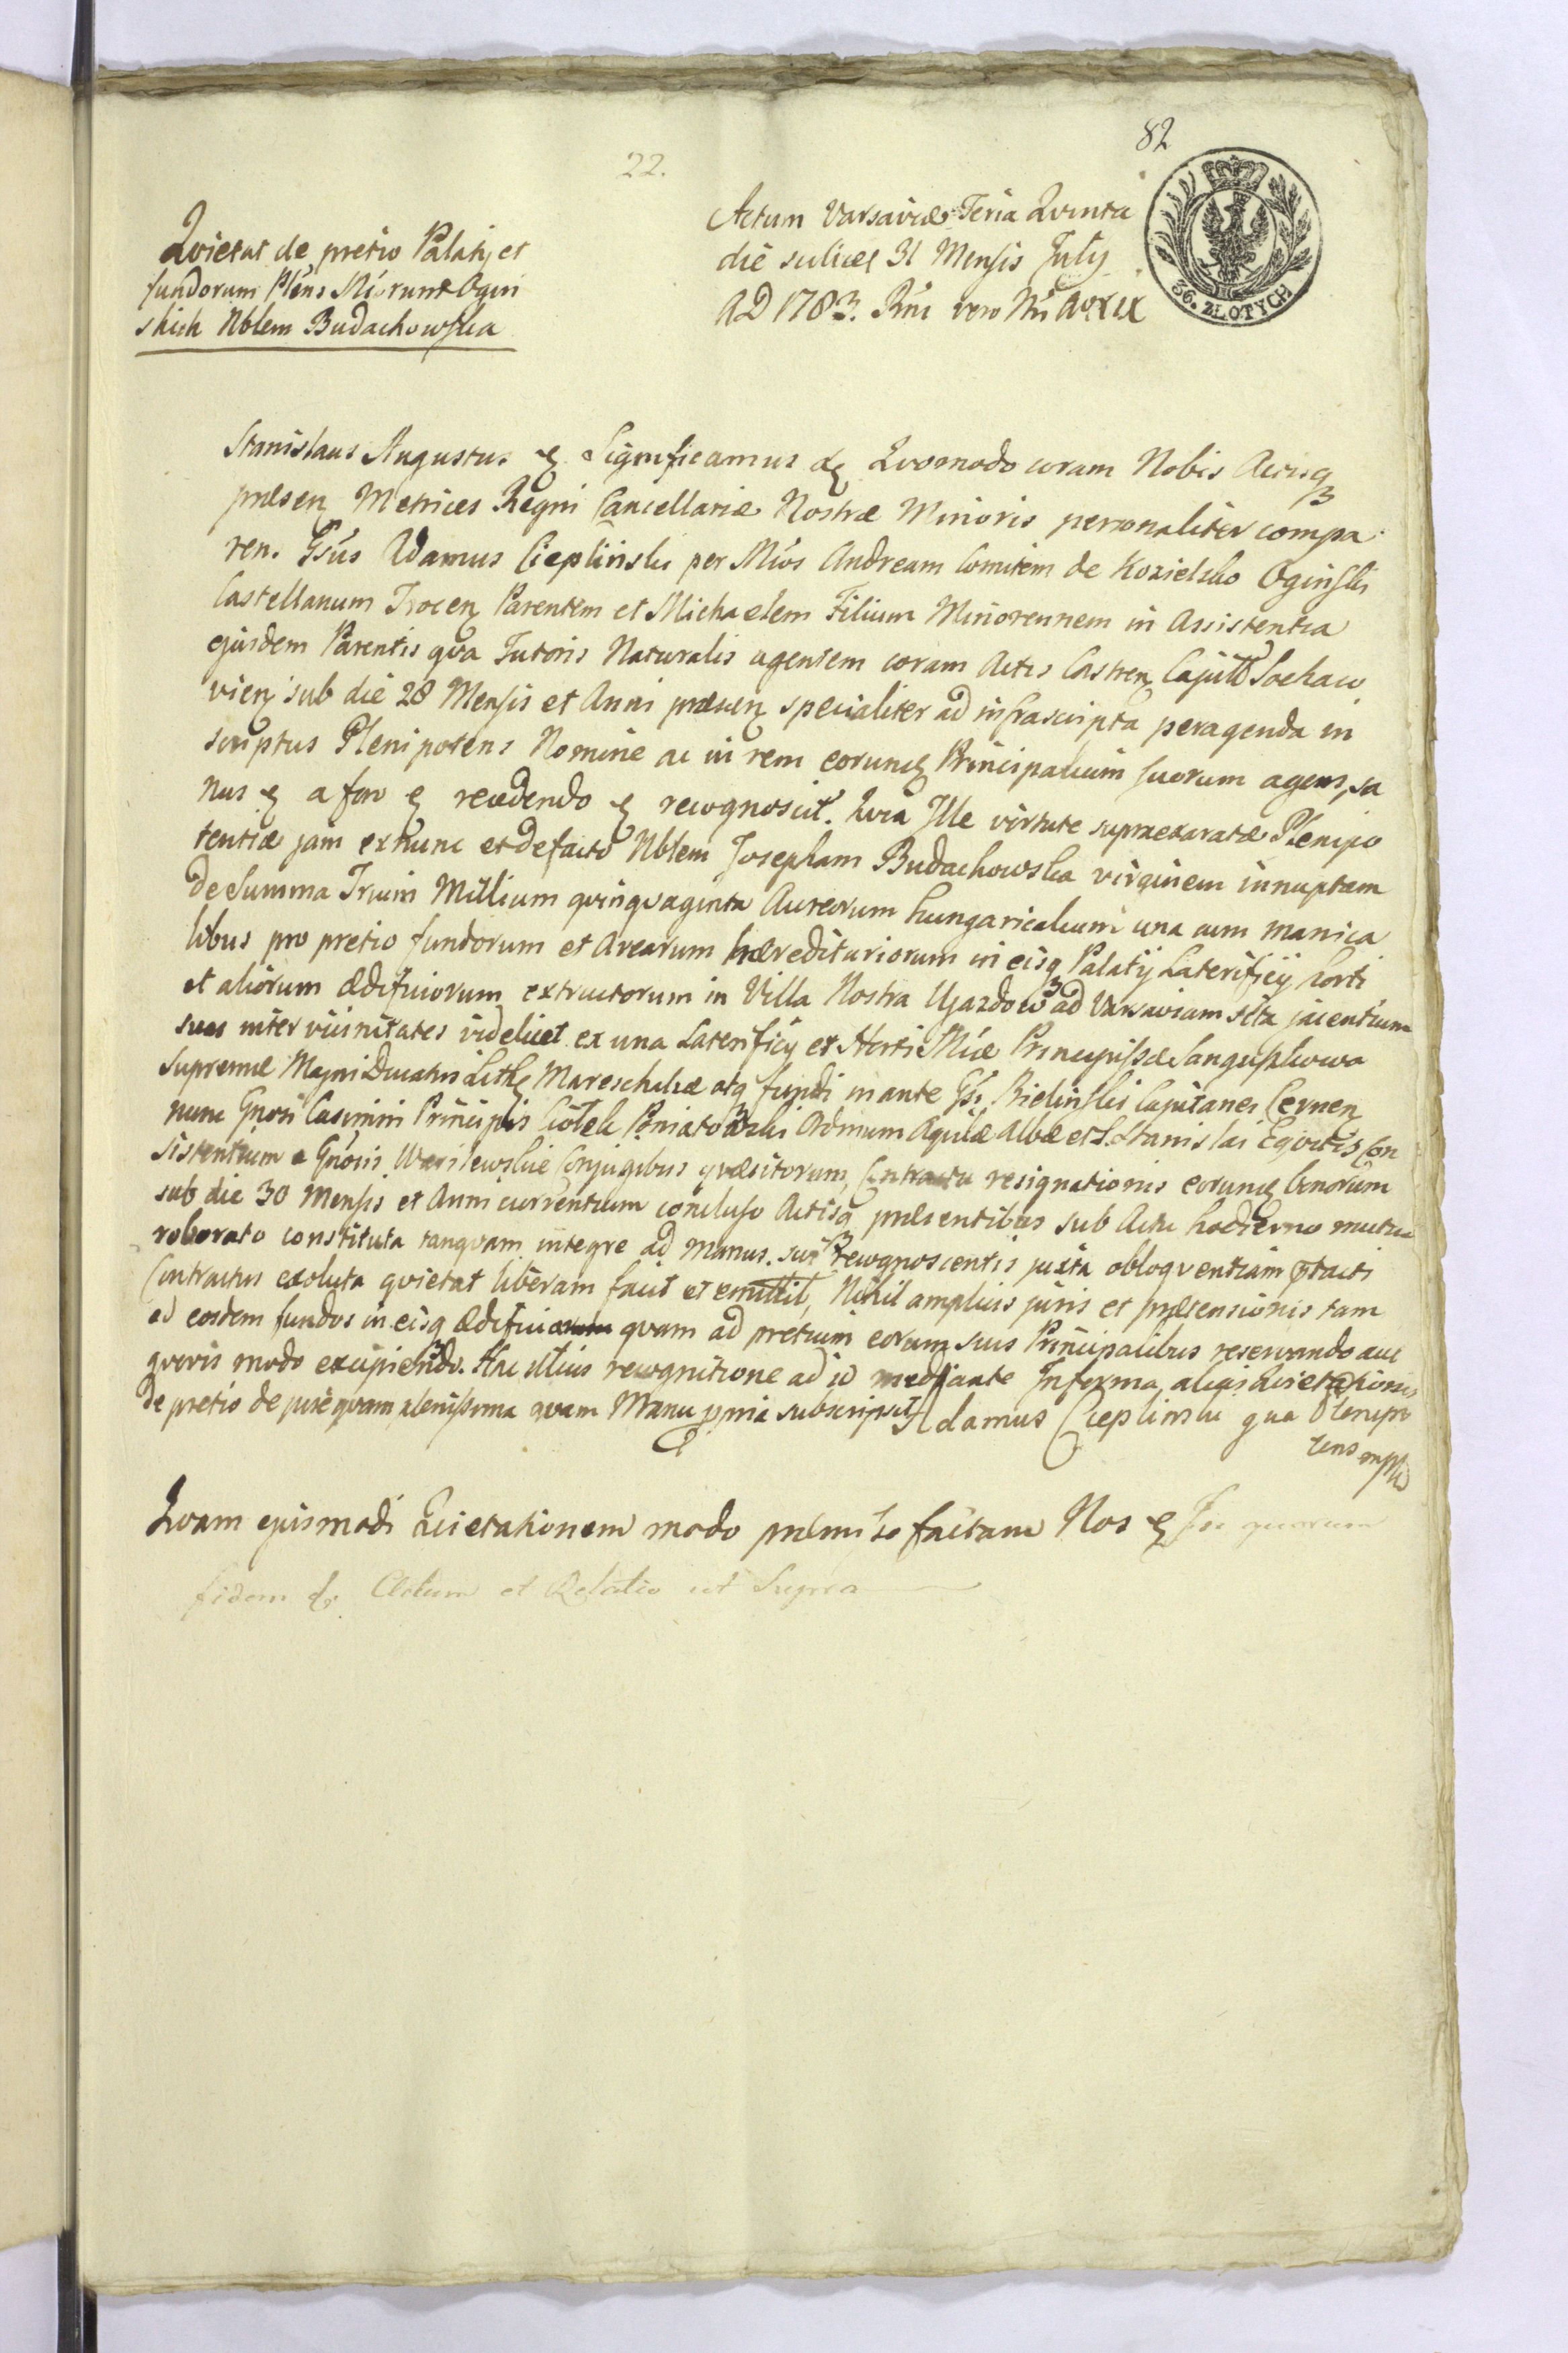 82
22.
Qvietat de pretio Palatij et
fundorum Plens Miorum Ogin
skich Nblem Budachowska
Actum Varsaviæ Feria Qvinta
die scilicet 31 Mensis July
AD 1783. Rni vero Nri
36. ZŁOTYCH
Stanislaus Augustus ꝛ Significamus ꝛ Qvomodo coram Nobis Actisqꝫ
præsenꝛ Metrices Regni Cancellariæ Nostræ Minoris personaliter compa
ren. Gsus Adamus Cieplinski per Mios Andream Comitem de Kozielsko Oginski
Castellanum Trocenꝛ Parentem et Michaelem Filium Minorennem in Assistentia
ejusdem Parentis qva Tutoris Naturalis agentem coram Actis Castrenꝛ Capitt Sochaw
vienꝛ sub die 28 Mensis et Anni præsenꝛ specialiter ad infrascripta peragenda in
scriptus Plenipotens Nomine ac in rem eorumꝛ Principalium suorum agens, sa
nus ꝛ a foro ꝛ recedendo ꝛ recognoscit. Qvia Ille virtute supraexaratæ Plenipo
tentiæ jam ex nunc et de facto Nblem Josepham Budachowska virginem innuptam
de Summa Trium Millium qvinqvaginta Aureorum hungaricalium una cum manica
libus pro pretio fundorum et Arearum hæreditariorum in eisqꝫ Palatij Laterificij horti
et aliorum ædificiorum extructorum in Villa Nostra Ujazdow ad Varsaviam sita jacentium
suas inter vicinitates videlicet ex una Laterificij et Horti Miæ Principissæ Sanguszkowa
Supremæ Magni Ducatus Lithꝛ Mareschalcæ atqꝫ fundi in ante Gsi Bielinski Capitanei Cernenꝛ
nunc Gnosi Casimiri Principis Ciołek Poniatowski Ordinum Aqvilæ Albæ et S. Stanislai Eqvitis Con
sistentium a Gnosis Wasilewskie Conjugibus qvæsitorum, Contractu resignationis eorumꝛ bonorum
sub die 30 Mensis et Anni currentium concluso Actisqꝫ præsentibus sub Actu hodierno mutue
roborato constituta tanqvam integre ad manus sui recognoscentis juxta obloqventiam ptacti
Contractus exoluta qvietat liberam facit et emittit, Nihil amplius juris et prætensionis tam
ad eosdem fundos in eisqꝫ ædificia qvam ad pretium eorum suis Principalibus reservando aut
qvovis modo excipiendo. Hac illius recognitione ad id mediante In forma alias Qvietationis
de pretio de jure qvam plenissima qvam Manu ppria subscripsit Adamus Cieplinski qua Plenipo
tens mpp
Qvam ejusmodi Qvietationem modo præmisso factam Nos ꝛ In quorum
fidem ꝛ. Actum et Relatio ut Supra